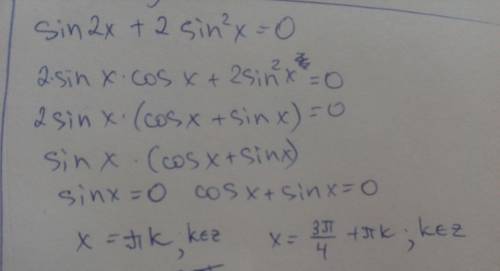 sin2x + 2 sin²x = 0
2·sin x·cos x + 2sin²x = 0
2 sin x·(cos x + sin x) = 0
sin x · (cos x + sin x)
sin x = 0 cos x + sin x = 0
x = πk; k∈z x = 3π/4 + πk; k∈z